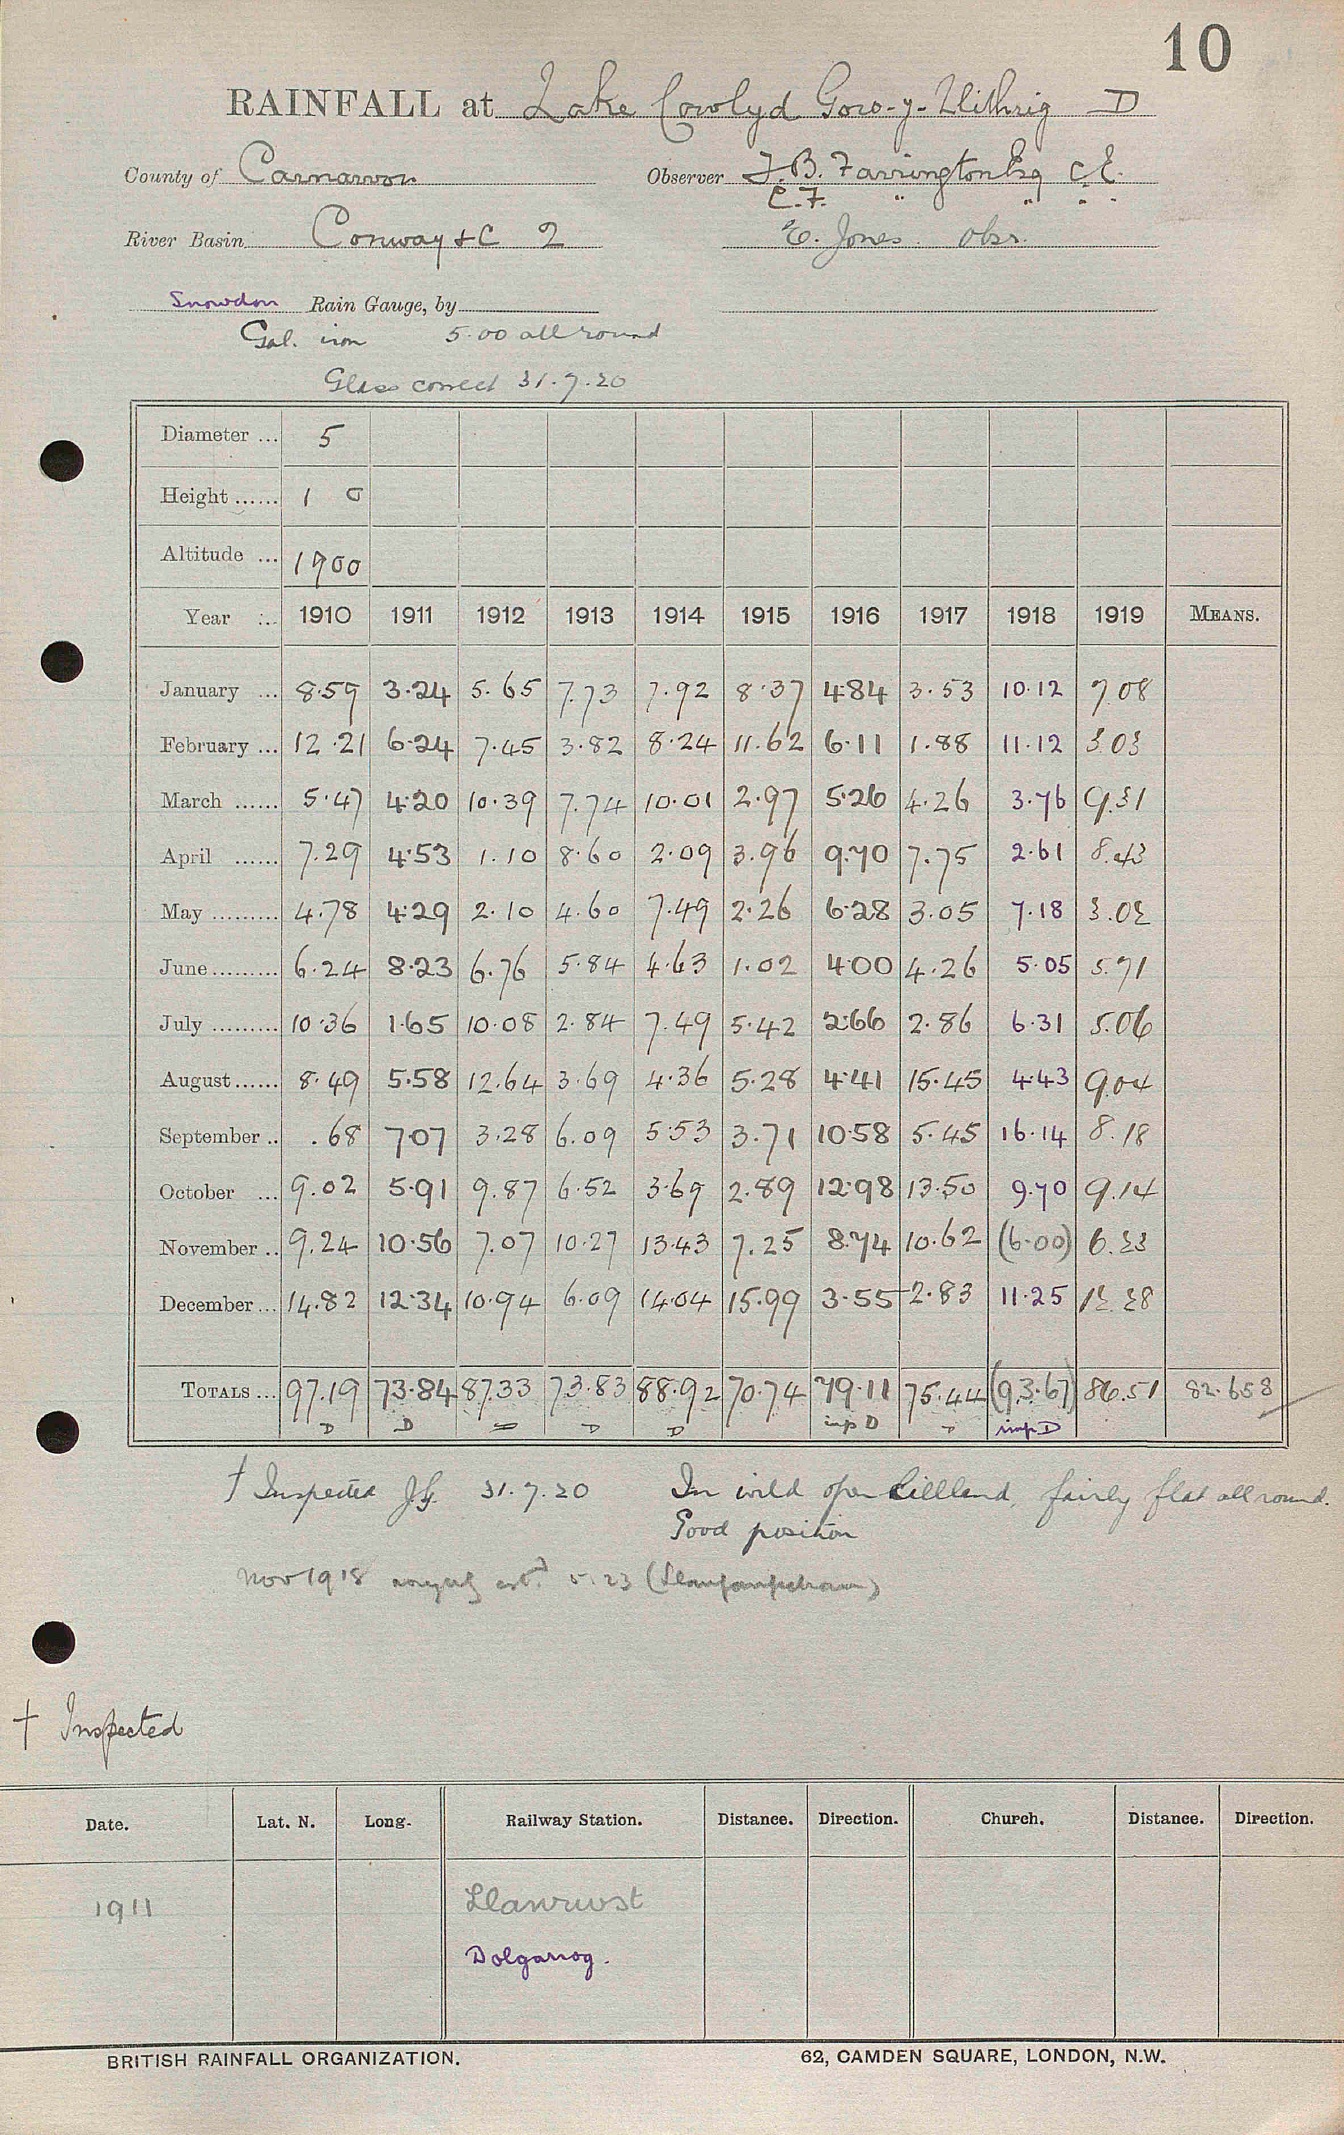 10
RAINFALL at Lake Cowlyd Gors-y-Llithrig D
County of Carnarvon Observer J. B. Farrington Esq C.E.
C.F. " " " "
River Basin Conway &C 2 E. Jones. Obsr.
Snowdon Rain Gauge, by
Gal. iron 5.00 all round
Glass correct 31.7.20
Diameter ... 5
Height ...... 1 0
Altitude ... 1700
Year ... 1910 1911 1912 1913 1914 1915 1916 1917 1918 1919 MEANS.
January ... 8.59 3.24 5.65 7.73 7.92 8.37 4.84 3.53 10.12 7.08
February ... 12.21 6.24 7.45 3.82 8.24 11.62 6.11 1.88 11.12 3.03
March ...... 5.47 4.20 10.39 7.74 10.01 2.97 5.26 4.26 3.76 9.31
April ...... 7.29 4.53 1.10 8.60 2.09 3.96 9.70 7.75 2.61 8.43
May ......... 4.78 4.29 2.10 4.60 7.49 2.26 6.28 3.05 7.18 3.02
June ......... 6.24 8.23 6.76 5.84 4.63 1.02 4.00 4.26 5.05 5.71
July ......... 10.36 1.65 10.08 2.84 7.49 5.42 2.66 2.86 6.31 5.06
August ...... 8.49 5.58 12.64 3.69 4.36 5.28 4.41 15.45 4.43 9.04
September .. .68 7.07 3.28 6.09 5.53 3.71 10.58 5.45 16.14 8.18
October ... 9.02 5.91 9.87 6.52 3.69 2.89 12.98 13.50 9.70 9.14
November .. 9.24 10.56 7.07 10.27 13.43 7.25 8.74 10.62 (6.00) 6.23
December ... 14.82 12.34 10.94 6.09 14.04 15.99 3.55 2.83 11.25 12.28
TOTALS ... 97.19 73.84 87.33 73.83 88.92 70.74 79.11 75.44 (93.67) 86.51 82.658
D D D D D imp D D imp D
† Inspected 31.7.20 In wild open hillland, fairly flat all round.
Good position
Nov 1918 est.d 5.23
† Inspected
Date. Lat. N. Long. Railway Station. Distance. Direction. Church. Distance. Direction.
1911 Llanrwst
Dolgarrog.
BRITISH RAINFALL ORGANIZATION. 62, CAMDEN SQUARE, LONDON, N.W.